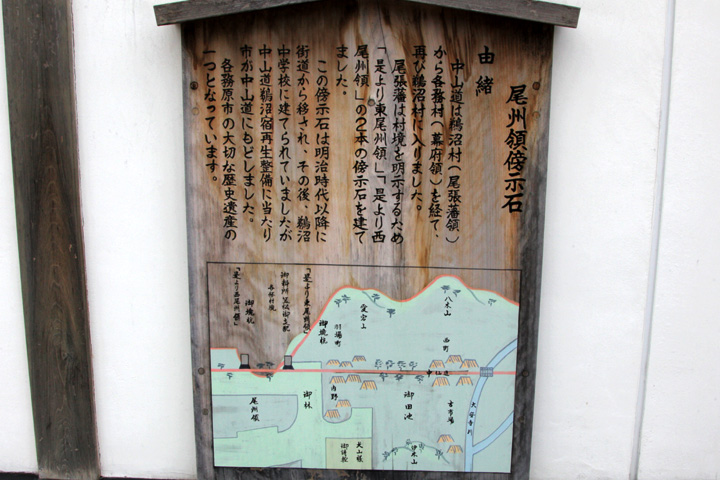 尾州領傍示石
由緒
中山道は鵜沼村（尾張藩領）
から各務村（幕府領）を経て、
再び鵜沼村に入りました。
尾張藩は村境を明示するため
「是より東尾州領」「是より西
尾州領」の2本の傍示石を建て
ました。
この傍示石は明治時代以降に
街道から移され、その後、鵜沼
中学校に建てられていましたが
中山道鵜沼宿再生整備に当たり
市が中山道にもどしました。
各務原市の大切な歴史遺産の
一つとなっています。
八木山
愛宕山
羽場町
西町
御境杭
「是より東尾州領」
各務村後
御境杭
「是より西尾州領」
中仙道
大安寺川
古市場
御田池
内野
御林
尾州領
伊木山
犬山様